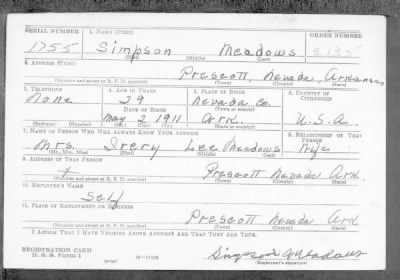 SERIAL NUMBER 1. NAME (Print) ORDER NUMBER
1755 Simpson Meadows 2135
(First) (Middle) (Last)
2. ADDRESS (Print)
Prescott, Nevada, Arkansas
(Number and street or R. F. D. number) (Town) (County) (State)
3. TELEPHONE 4. AGE IN YEARS 5. PLACE OF BIRTH 6. COUNTRY OF CITIZENSHIP
None 29 Nevada Co.
DATE OF BIRTH (Town or county)
May 2 1911 Ark. U.S.A.
(Exchange) (Number) (Mo.) (Day) (Yr.) (State or country)
7. NAME OF PERSON WHO WILL ALWAYS KNOW YOUR ADDRESS 8. RELATIONSHIP OF THAT PERSON
Mrs. Ivery Lee Meadows Wife
(Mr., Mrs., Miss) (First) (Middle) (Last)
9. ADDRESS OF THAT PERSON
Prescott Nevada Ark.
(Number and street or R. F. D. number) (Town) (County) (State)
10. EMPLOYER'S NAME
Self
11. PLACE OF EMPLOYMENT OR BUSINESS
Prescott Nevada Ark
(Number and street or R. F. D. number) (Town) (County) (State)
I AFFIRM THAT I HAVE VERIFIED ABOVE ANSWERS AND THAT THEY ARE TRUE.
REGISTRATION CARD
D. S. S. Form 1 (over) 16—17105 Simpson Meadows
(Registrant's signature)